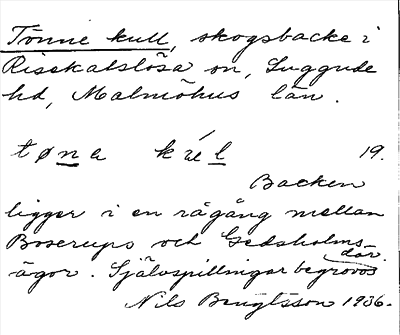 Tønne kull, skogsbacke i
Risekatslösa sn, Luggude
hd, Malmöhus län.
tøna kúl 19.
Backen
ligger i en rågång mellan
Boserups och Gedsholms
ägor. Självspillingar begrovos där.
Nils Bengtsson 1936.